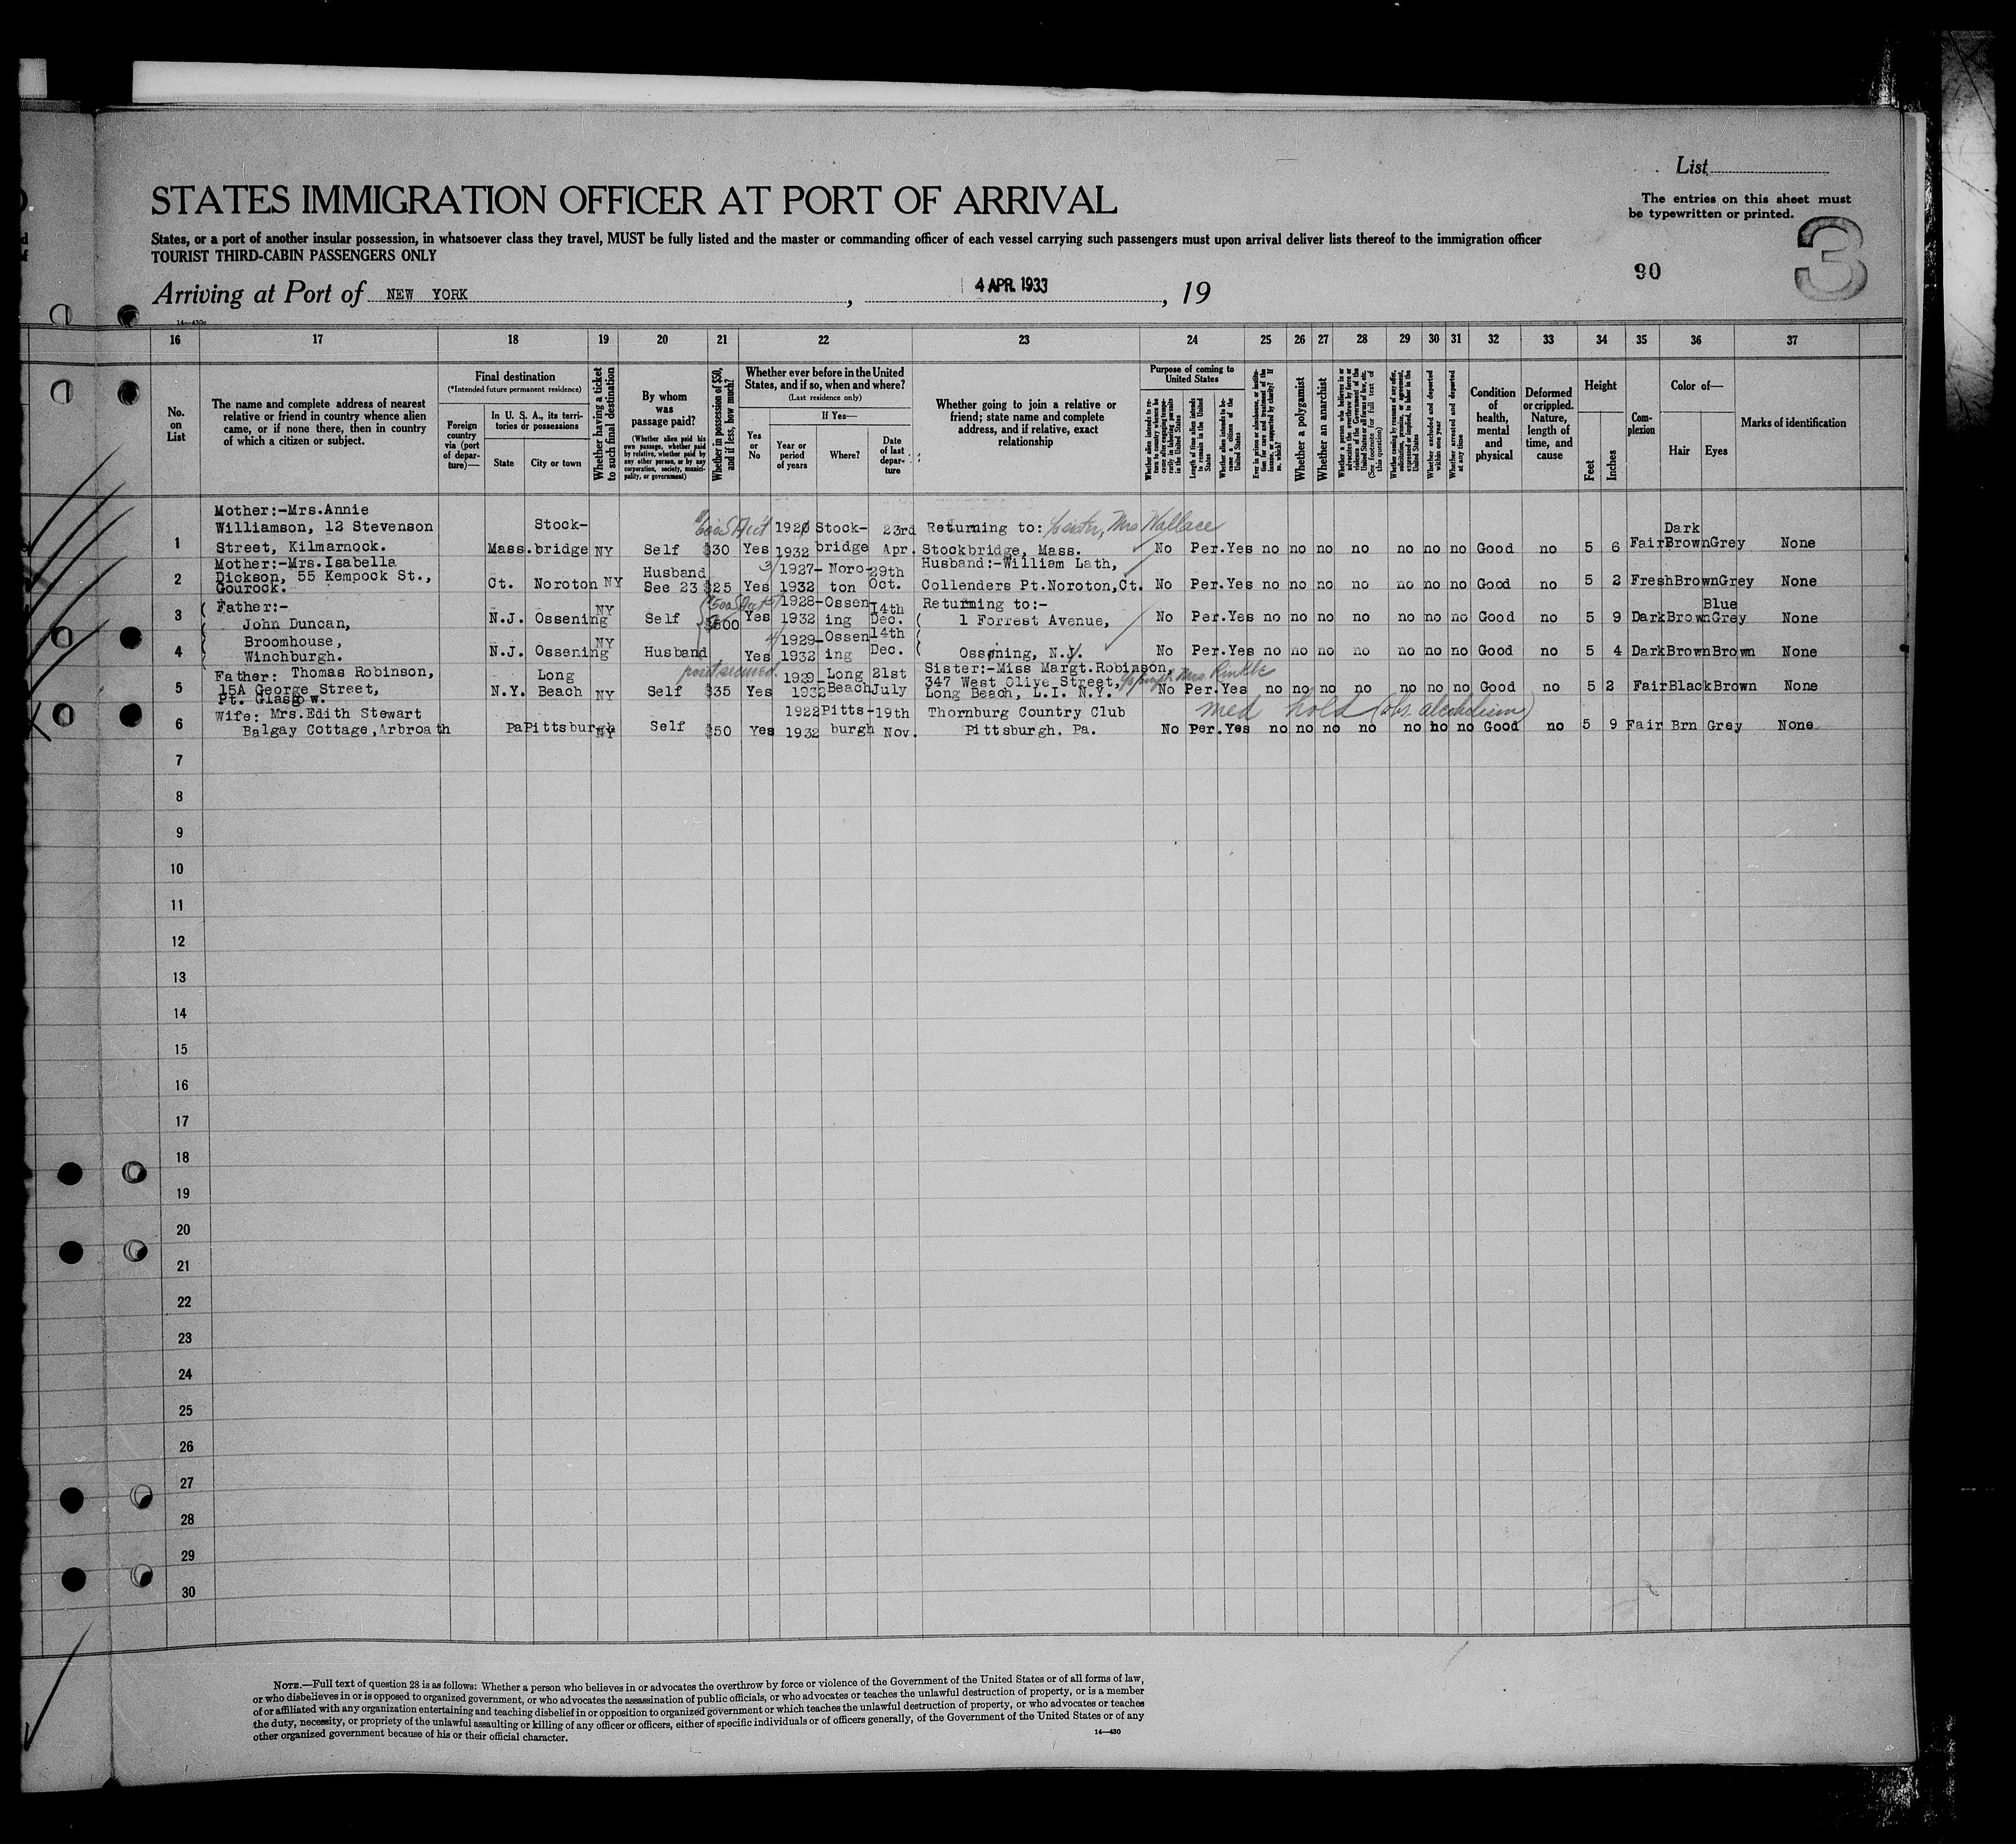 List
The entries on this sheet must
be typewritten or printed.
STATES IMMIGRATION OFFICER AT PORT OF ARRIVAL
States, or a port of another insular possession, in whatsoever class they travel, MUST be fully listed and the master or commanding officer of each vessel carrying such passengers must upon arrival deliver lists thereof to the immigration officer
TOURIST THIRD-CABIN PASSENGERS ONLY
90
3
Arriving at Port of NEW YORK, 4 APR. 1933, 19
14—430c
16 17 18 19 20 21 22 23 24 25 26 27 28 29 30 31 32 33 34 35 36 37
No. on List
The name and complete address of nearest
relative or friend in country whence alien
came, or if none there, then in country
of which a citizen or subject.
Final destination
(*Intended future permanent residence)
Foreign country via (port of departure)—
In U. S. A., its territories or possessions
State
City or town
Whether having a ticket to such final destination
By whom was passage paid?
(Whether alien paid his own passage, whether paid by relative, whether paid by any other person, or by any corporation, society, municipality, or government)
Whether in possession of $50, and if less, how much?
Whether ever before in the United
States, and if so, when and where?
(Last residence only)
Yes or No
If Yes—
Year or period of years
Where?
Date of last departure
Whether going to join a relative or
friend; state name and complete
address, and if relative, exact
relationship
Purpose of coming to United States
Whether alien intends to return to country whence he came after engaging temporarily in laboring pursuits in the United States
Length of time alien intends to remain in the United States
Whether alien intends to become a citizen of the United States
Ever in prison or almshouse, or institution for care and treatment of the insane, or supported by charity? If so, which?
Whether a polygamist
Whether an anarchist
Whether a person who believes in or advocates the overthrow by force or violence of the Government of the United States or all forms of law, etc. (See footnote for full text of this question)
Whether coming by reasons of any offer, solicitation, promise, or agreement, expressed or implied, to labor in the United States
Whether excluded and deported within one year
Whether arrested and deported at any time
Condition of health, mental and physical
Deformed or crippled. Nature, length of time, and cause
Height
Feet
Inches
Complexion
Color of—
Hair
Eyes
Marks of identification
Mother:-Mrs.Annie
Williamson, 12 Stevenson Stock- 192 Stock- 23rd Returning to: Mrs Wallace Dark
1 Street, Kilmarnock. Mass. bridge NY Self $30 Yes 1932 bridge Apr. Stockbridge, Mass. No Per. Yes no no no no no no no Good no 5 6 Fair Brown Grey None
Mother:-Mrs.Isabella Husband 1927- Noro- 29th Husband:-William Lath,
2 Dickson, 55 Kempock St., Ct. Noroton NY See 23 $25 Yes 1932 ton Oct. Collenders Pt.Noroton,Ct. No Per. Yes no no no no no no no Good no 5 2 Fresh Brown Grey None
Gourock.
3 ( Father:- NY 1928- Ossen 14th Returning to:- Blue
( John Duncan, N.J. Ossening Self $500 Yes 1932 ing Dec. ( 1 Forrest Avenue, No Per. Yes no no no no no no no Good no 5 9 Dark Brown Grey None
( Broomhouse, NY 1929- Ossen 14th (
4 ( Winchburgh. N.J. Ossening Husband Yes 1932 ing Dec. ( Ossening, N.Y. No Per. Yes no no no no no no no Good no 5 4 Dark Brown Brown None
Father: Thomas Robinson, Long 1929- Long 21st Sister:-Miss Margt.Robinson, Mrs
5 15A George Street, N.Y. Beach NY Self $35 Yes 1932 Beach July 347 West Olive Street,
Pt. Glasgow. Long Beach, L.I. N.Y. No Per. Yes no no no no no no no Good no 5 2 Fair Black Brown None
Wife: Mrs.Edith Stewart 1922 Pitts- 19th Thornburg Country Club med hold (obs. alcoholism)
6 Balgay Cottage, Arbroath Pa Pittsburgh NY Self $50 Yes 1932 burgh Nov. Pittsburgh, Pa. No Per. Yes no no no no no no no Good no 5 9 Fair Brn Grey None
7
8
9
10
11
12
13
14
15
16
17
18
19
20
21
22
23
24
25
26
27
28
29
30
NOTE.—Full text of question 28 is as follows: Whether a person who believes in or advocates the overthrow by force or violence of the Government of the United States or of all forms of law,
or who disbelieves in or is opposed to organized government, or who advocates the assassination of public officials, or who advocates or teaches the unlawful destruction of property, or is a member
of or affiliated with any organization entertaining and teaching disbelief in or opposition to organized government or which teaches the unlawful destruction of property, or who advocates or teaches
the duty, necessity, or propriety of the unlawful assaulting or killing of any officer or officers, either of specific individuals or of officers generally, of the Government of the United States or of any
other organized government because of his or their official character.
14—430